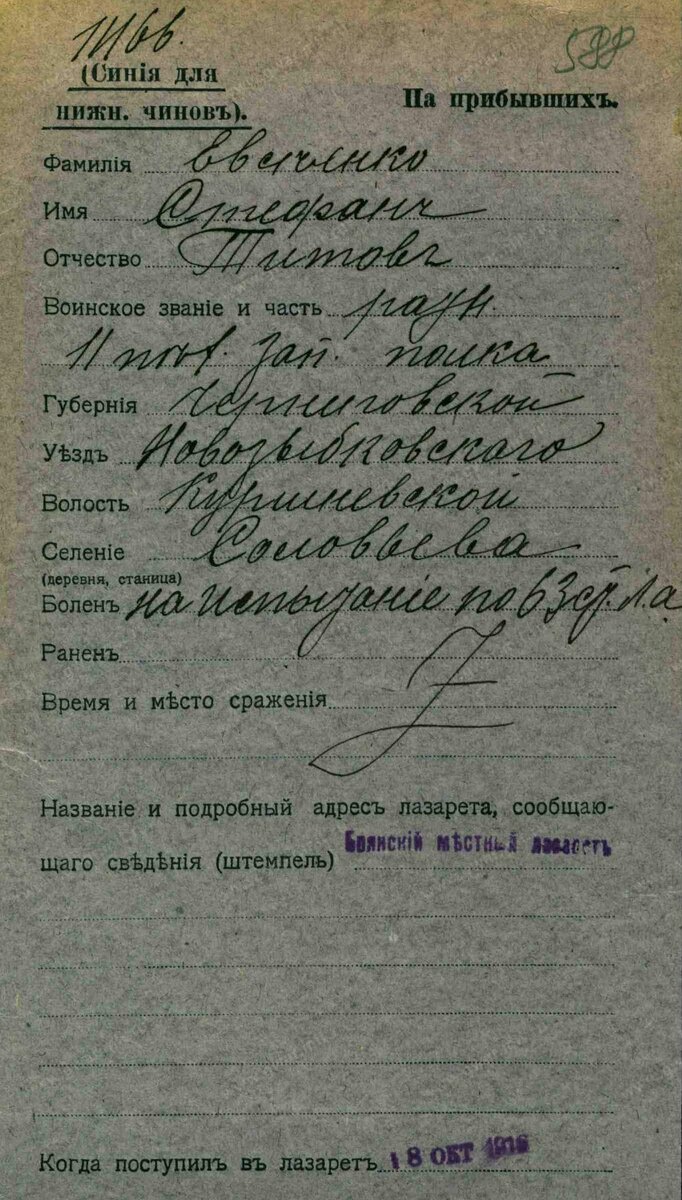 588
(Синія для
нижн. чиновъ).
На прибывшихъ.
Фамилія Евсиенко
Имя Стефанъ
Отчество Титовъ
Воинское званіе и часть рядн.
11 зап. полка
Губернія Черниговской
Уѣздъ Новозыбковскаго
Волость Куршневской
Селеніе Соловьева
(деревня, станица)
Боленъ на испытаніе по 63 ст. л. а
Раненъ
Время и мѣсто сраженія
Названіе и подробный адресъ лазарета, сообщаю-
щаго свѣдѣнія (штемпель) Брянскій мѣстный лазаретъ
Когда поступилъ въ лазаретъ 18 ОКТ 1916